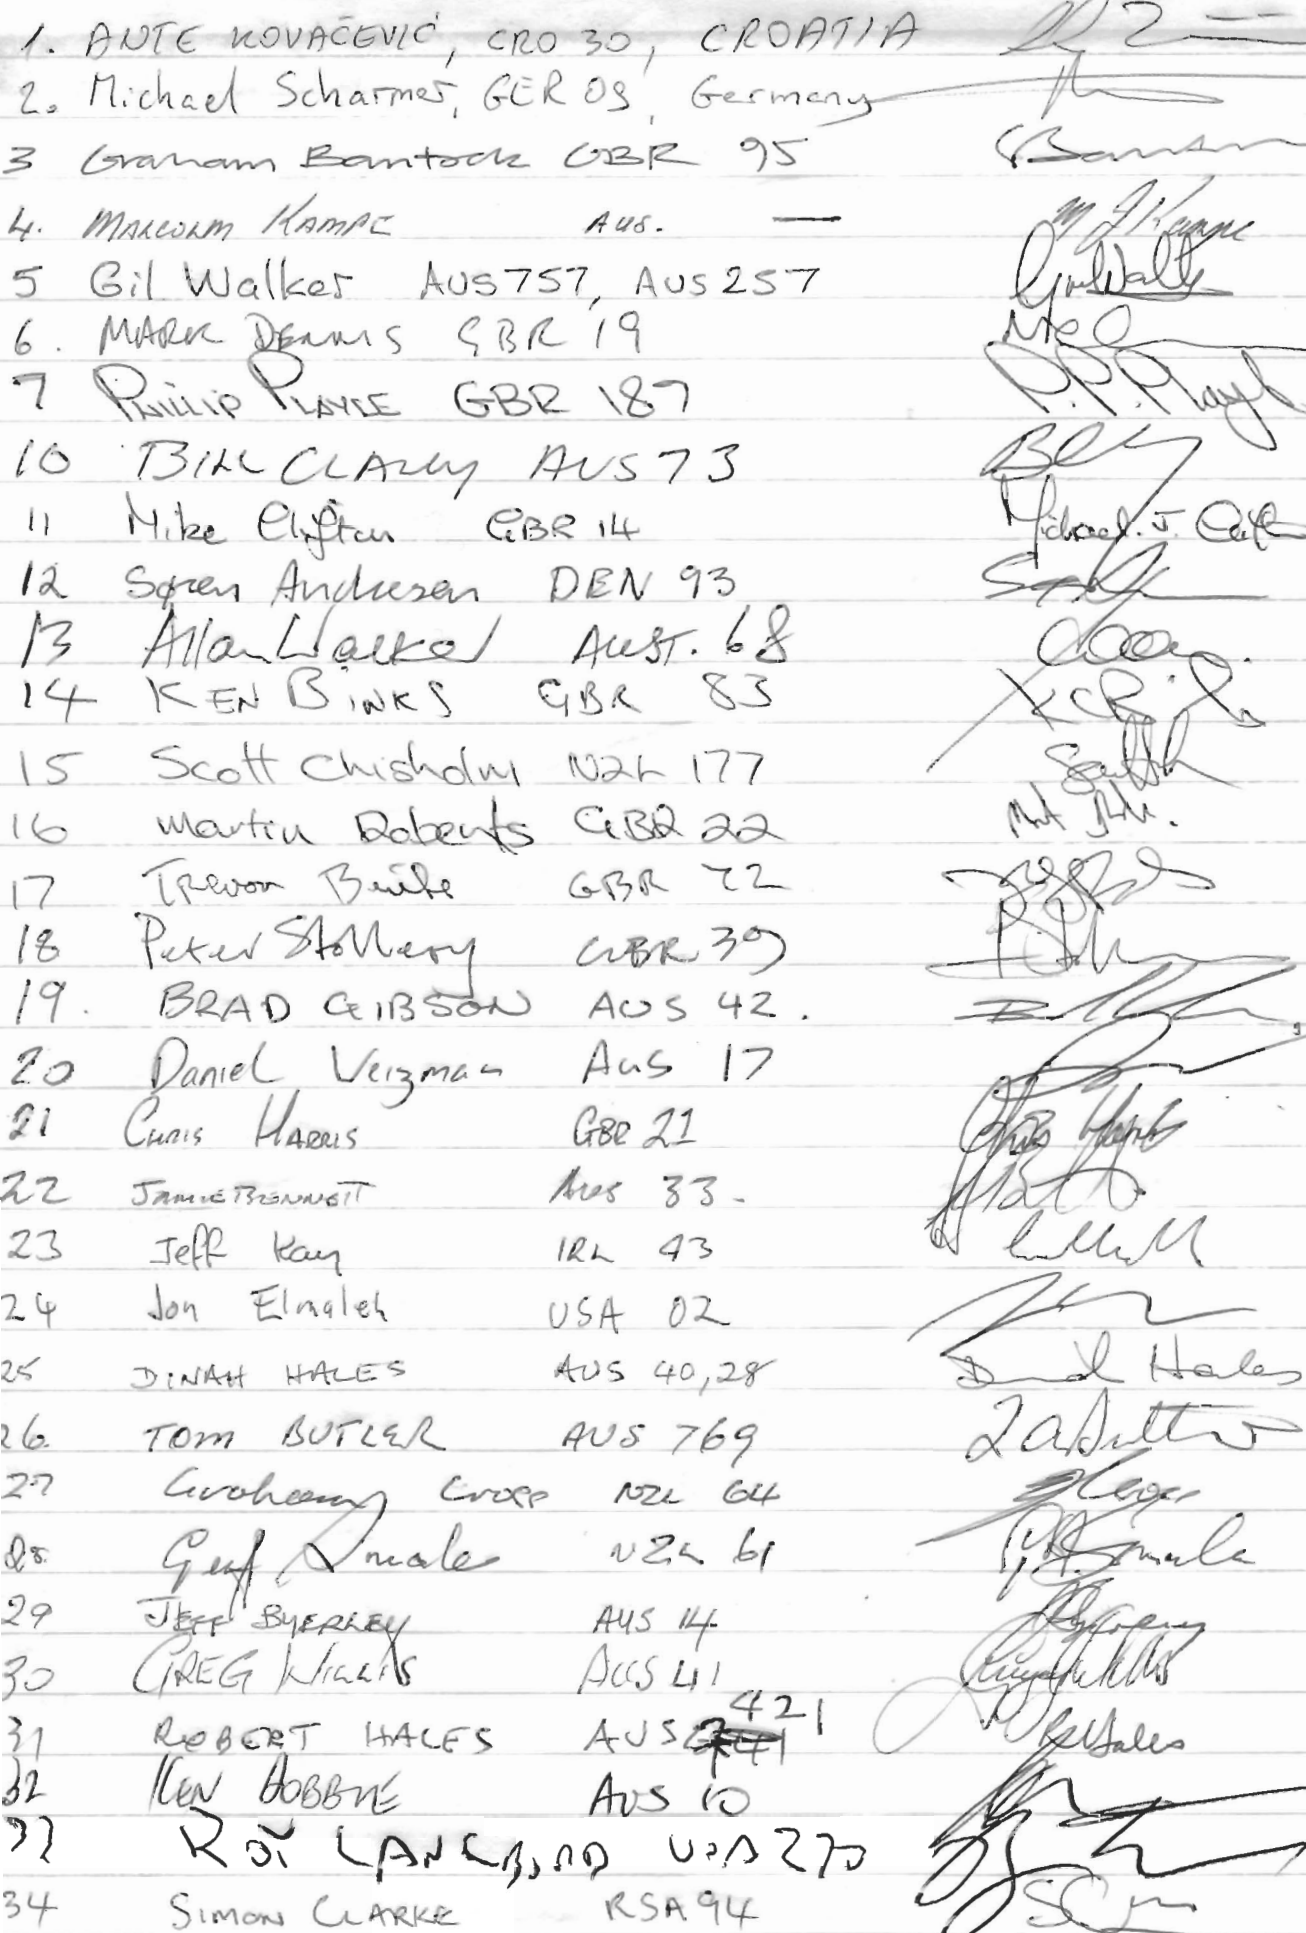 1. ANTE KOVAČEVIĆ, CRO 30, CROATIA
2. Michael Scharmer, GER 09, Germany
3 Graham Bantock GBR 95
4. MALCOLM KAMPE AUS. —
5 Gil Walker AUS 757, AUS 257
6. MARK DENNIS GBR 19
7 PHILLIP PLAYLE GBR 187 P.P. Playle
10 BILL AUS 73
11 Mike Clifton GBR 14 Michael. J. Clifton
12 Søren Andresen DEN 93
13 Allan Walker AUST. 68
14 KEN BINKS GBR 83
15 Scott Chisholm NZL 177
16 Martin Roberts GBR 22
17 Trevor GBR 72
18 Peter Stollery GBR 39
19. BRAD GIBSON AUS 42.
20 Daniel Weizman AUS 17
21 CHRIS HARRIS GBR 21 Chris Harris
22 JAMIE BENNETT AUS 33.
23 Jeff Kay IRL 43
24 Jon Elmaleh USA 02
25 DINAH HALES AUS 40,28 Dinah Hales
26. TOM BUTLER AUS 769
27 Graham Cross NZL 64
28. Geoff Smale NZL 61
29 JEFF BYERLEY AUS 14
30 GREG WILLIS AUS 41
31 ROBERT HALES AUS 421 R Hales
32 KEN DOBBIE AUS 10
33 ROY LANGBORD USA 270
34 SIMON CLARKE RSA 94